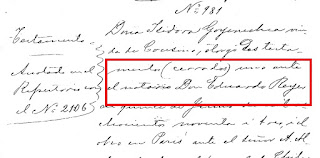 Nº 981
Testamento
Anotado en el
Repertorio con
el Nº 2106
Doña Isidora Goyenechea viu-
da de Cousiño otorgó dos testa
mentos (cerrados) uno ante
el notario Don Eduardo Reyes
en quince de Junio de
ochocientos noventa i tres, i el
otro en Paris ante el señor A. M.